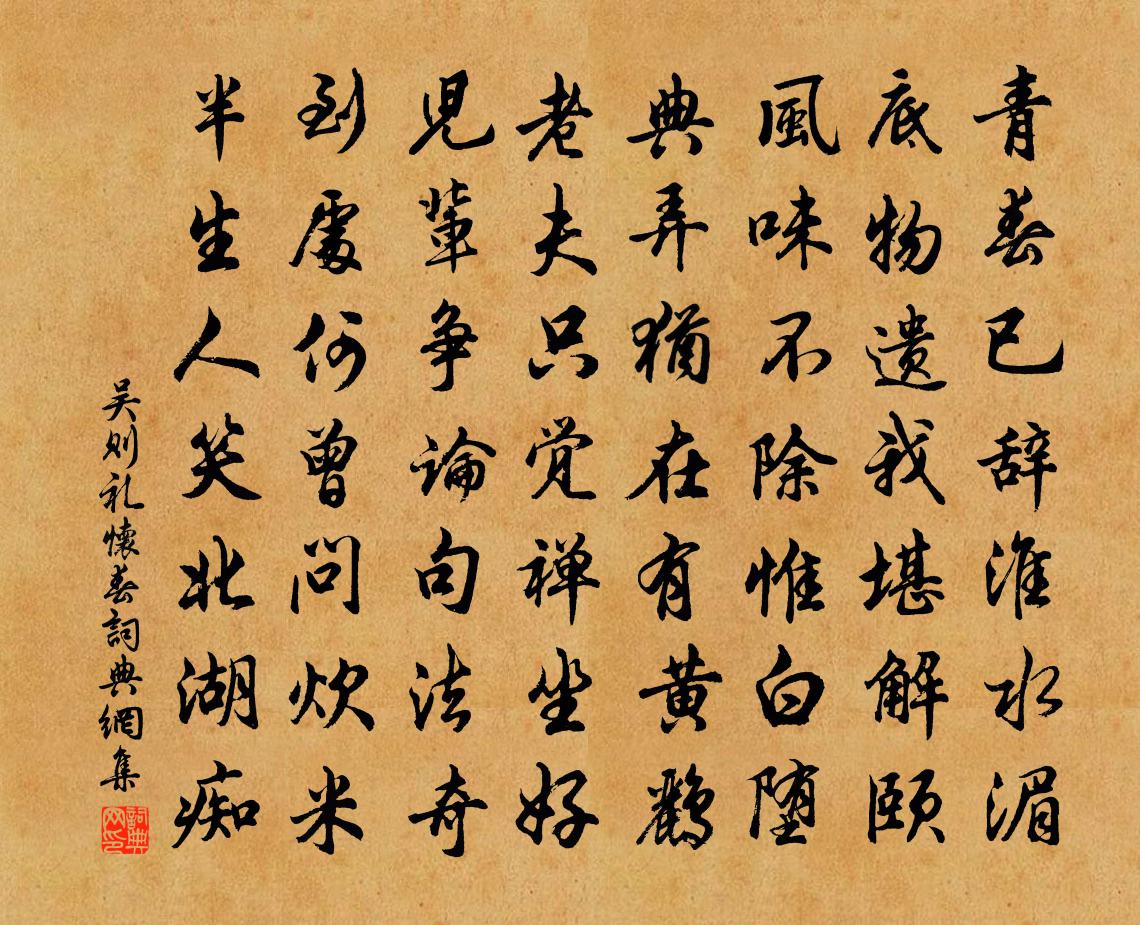 青春已辞淮水湄
底物遗我堪解颐
風味不除惟白堕
典弄猶在有黄鸝
老夫只觉禅坐好
児輩争論句法奇
到處何曾問炊米
半生人笑北湖痴
吴则礼懷春詞典網集
詞典网印